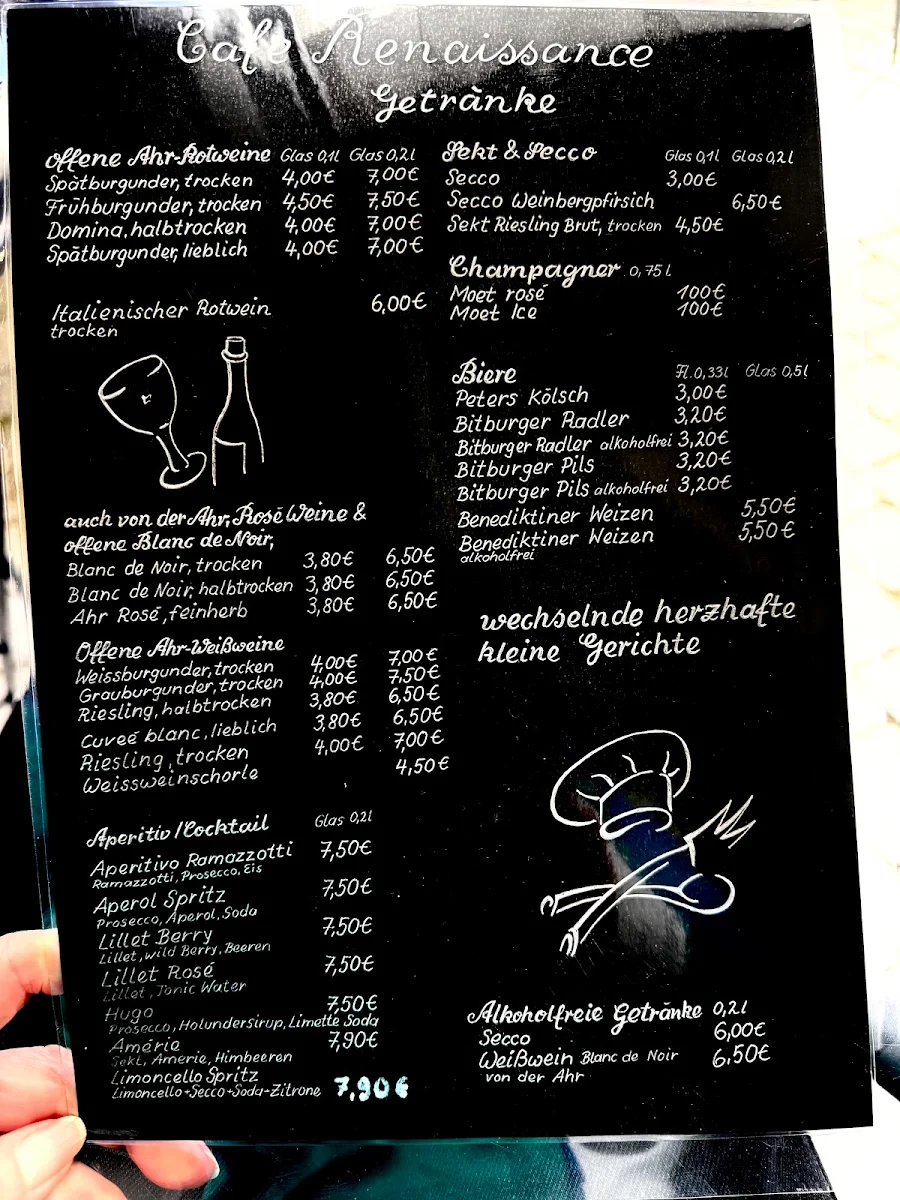 Café Renaissance
Getränke
offene Ahr-Rotweine Glas 0,1l Glas 0,2l
Spätburgunder, trocken 4,00€ 7,00€
Frühburgunder, trocken 4,50€ 7,50€
Domina, halbtrocken 4,00€ 7,00€
Spätburgunder, lieblich 4,00€ 7,00€
Italienischer Rotwein 6,00€
trocken
auch von der Ahr, Rosé Weine &
offene Blanc de Noir,
Blanc de Noir, trocken 3,80€ 6,50€
Blanc de Noir, halbtrocken 3,80€ 6,50€
Ahr Rosé, feinherb 3,80€ 6,50€
Offene Ahr-Weißweine
Weissburgunder, trocken 4,00€ 7,00€
Grauburgunder, trocken 4,00€ 7,50€
Riesling, halbtrocken 3,80€ 6,50€
Cuveé blanc, lieblich 3,80€ 6,50€
Riesling, trocken 4,00€ 7,00€
Weissweinschorle 4,50€
Aperitiv/Cocktail Glas 0,2l
Aperitivo Ramazzotti 7,50€
Ramazzotti, Prosecco, Eis
Aperol Spritz 7,50€
Prosecco, Aperol, Soda
Lillet Berry 7,50€
Lillet, wild Berry, Beeren
Lillet Rosé 7,50€
Lillet, Tonic Water
Hugo 7,50€
Prosecco, Holundersirup, Limette Soda
Amérie 7,90€
Sekt, Amerie, Himbeeren
Limoncello Spritz
Limoncello+Secco+Soda+Zitrone 7,90€
Sekt & Secco Glas 0,1l Glas 0,2l
Secco 3,00€
Secco Weinbergpfirsich 6,50€
Sekt Riesling Brut, trocken 4,50€
Champagner 0,75l
Moet rosé 100€
Moet Ice 100€
Biere Fl. 0,33l Glas 0,5l
Peters Kölsch 3,00€
Bitburger Radler 3,20€
Bitburger Radler alkoholfrei 3,20€
Bitburger Pils 3,20€
Bitburger Pils alkoholfrei 3,20€
Benediktiner Weizen 5,50€
Benediktiner Weizen 5,50€
alkoholfrei
wechselnde herzhafte
kleine Gerichte
Alkoholfreie Getränke 0,2l
Secco 6,00€
Weißwein Blanc de Noir 6,50€
von der Ahr